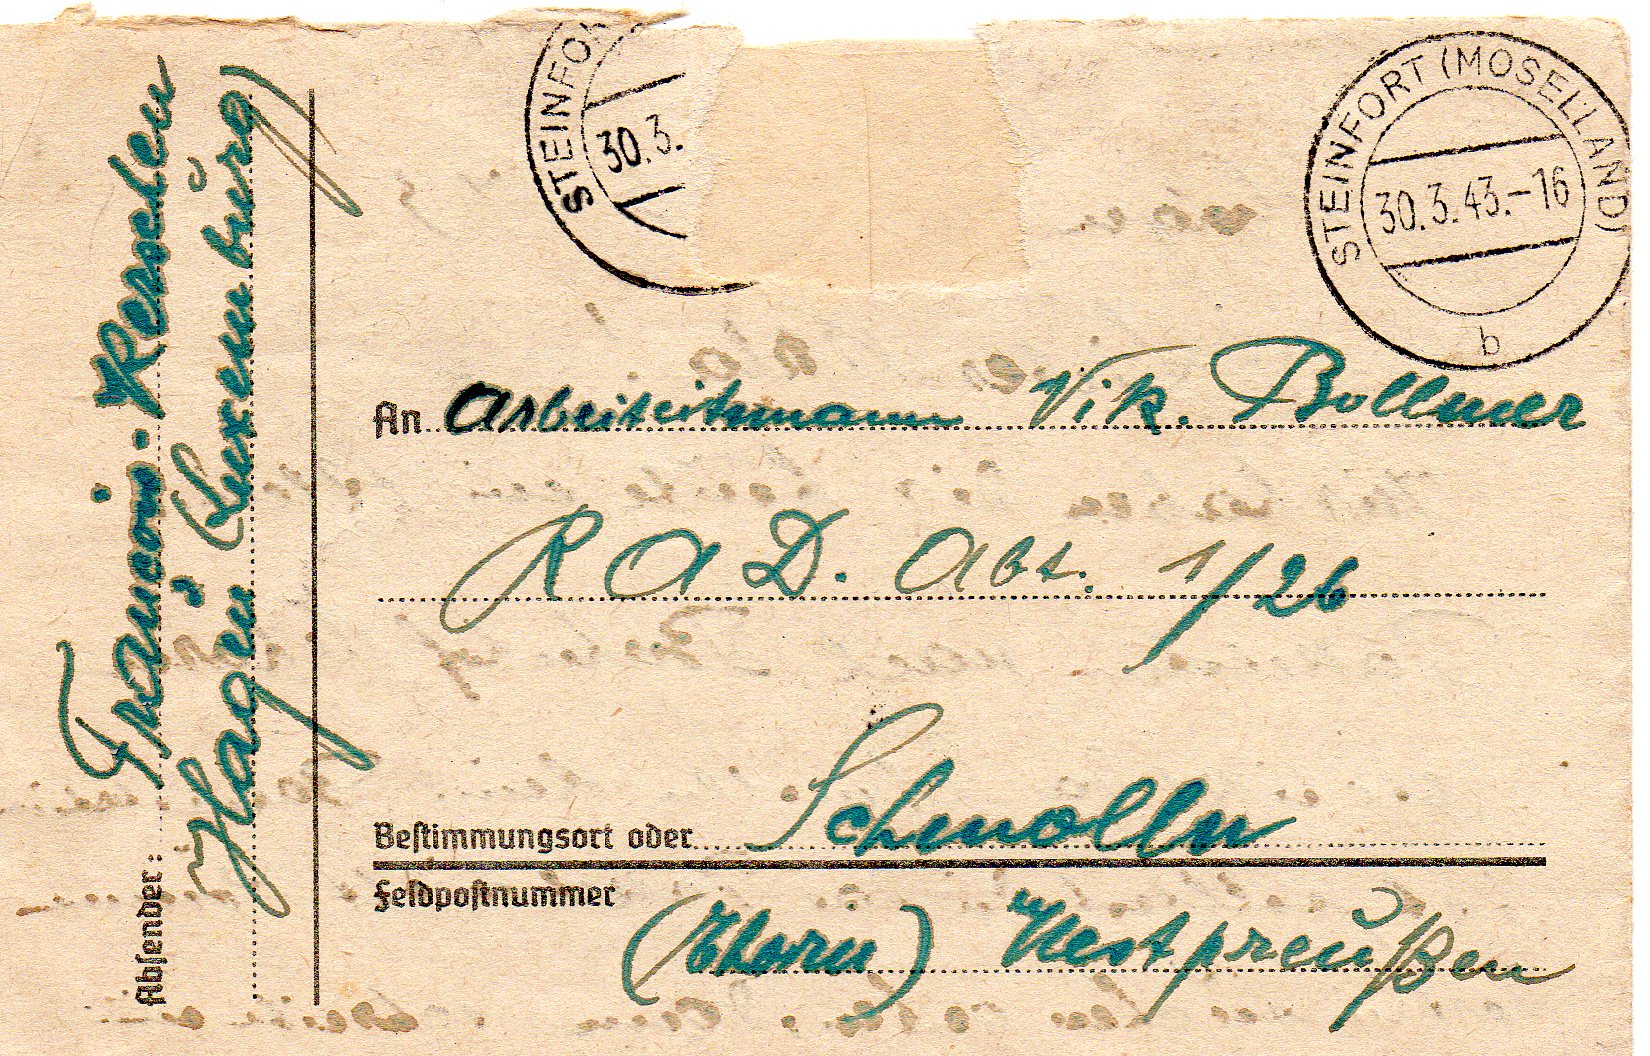 STEINFOR
30.3.
STEINFORT (MOSELLAND)
30.3.43.-16
b
Absender: Francois-Kerschen
Hagen (Luxemburg)
An Arbeitsmann Vik. Bollmer
RAD. Abt. 1/26
Bestimmungsort oder Schmolln
Feldpostnummer
(Thorn) Westpreußen